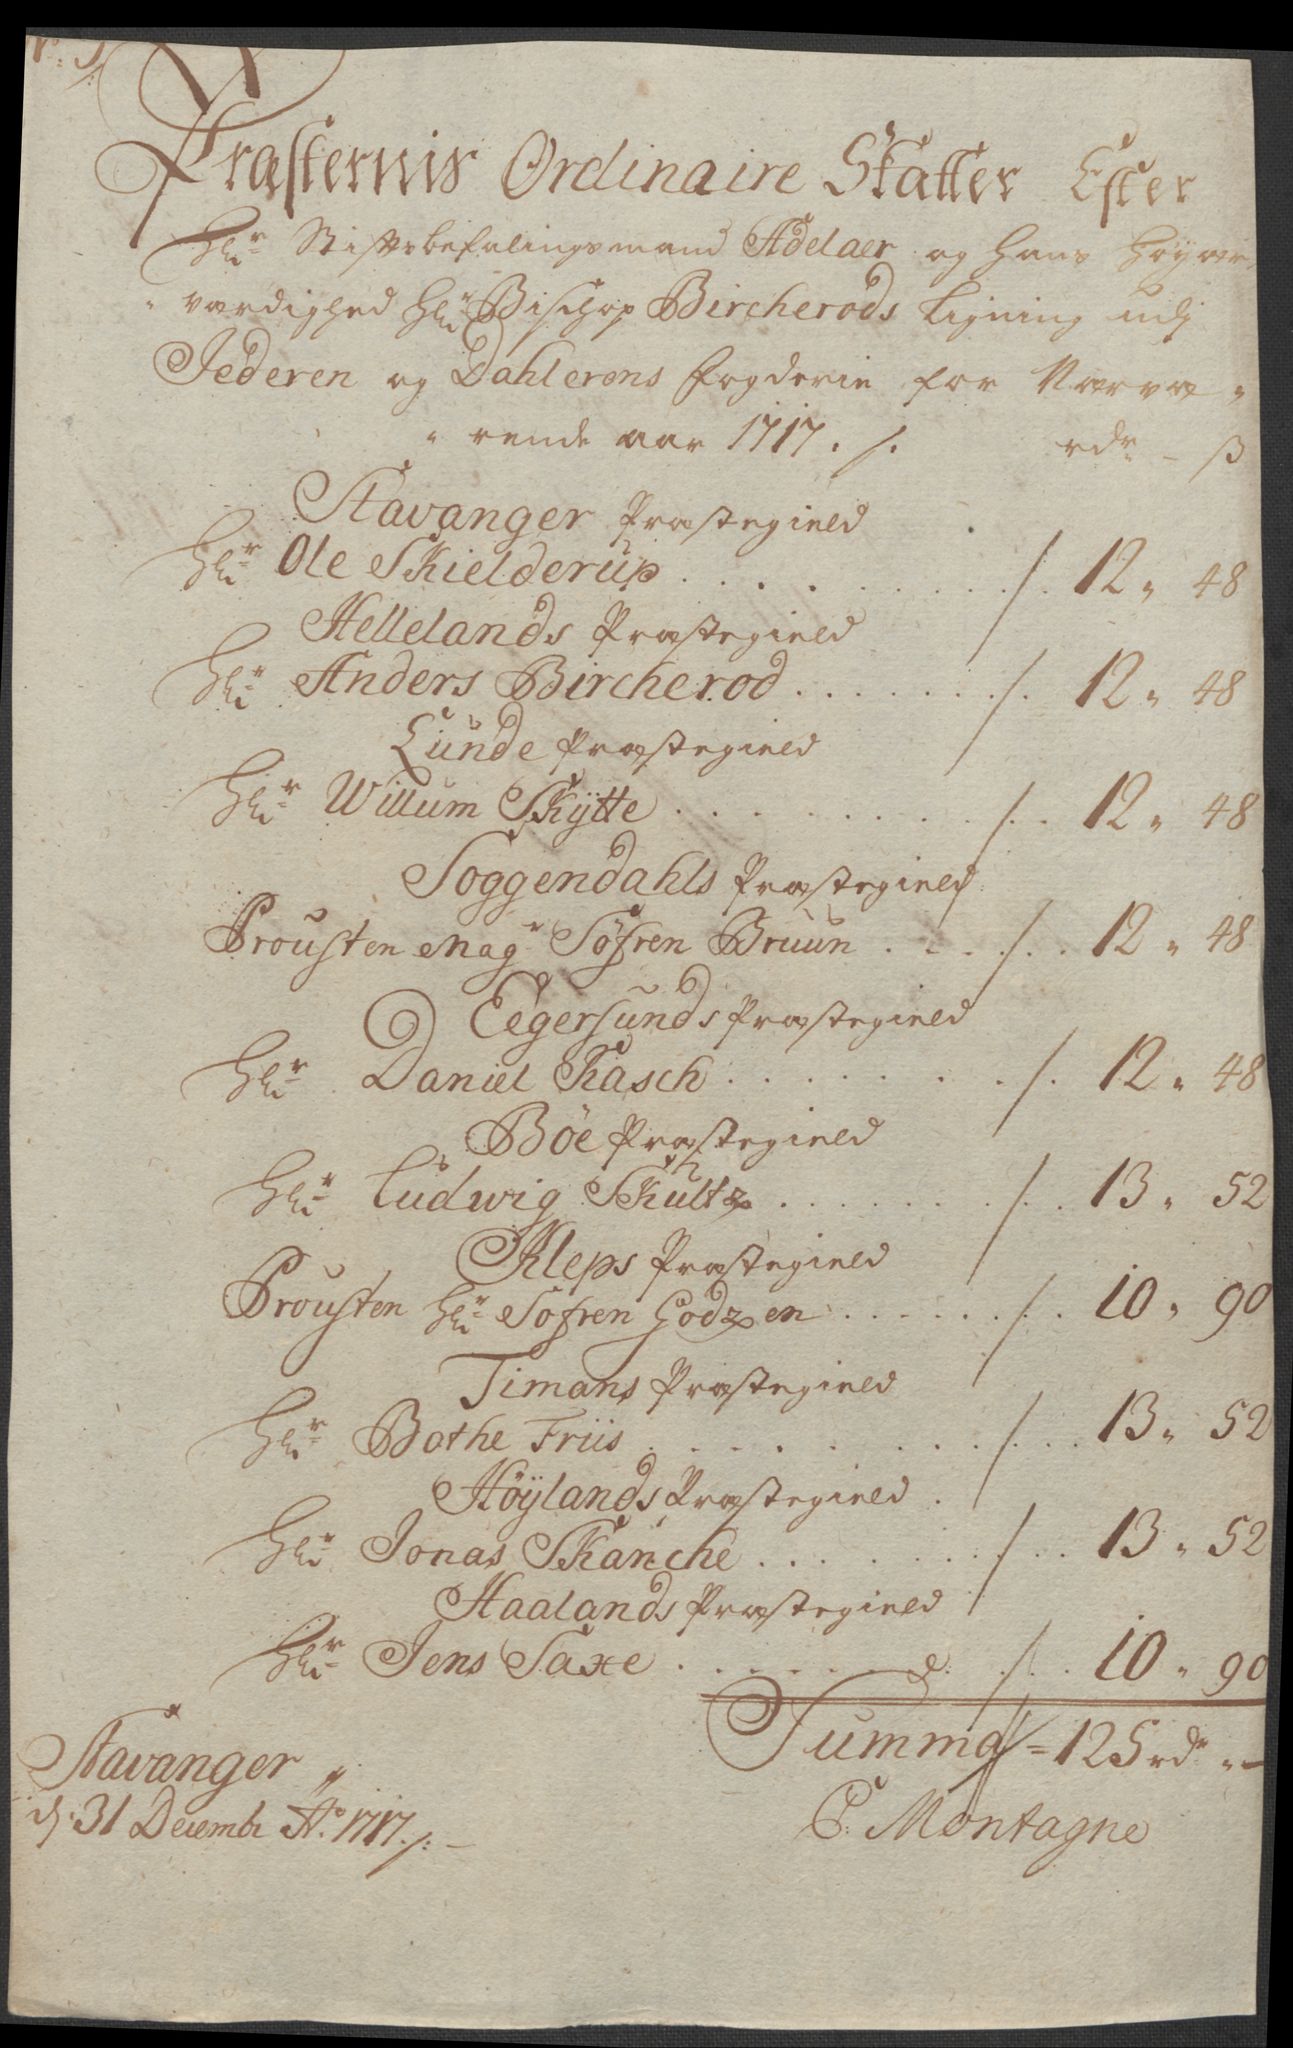 Præsternis Ordinaire Skatter Efter
Hr Stiftbefalingsmand Adelaer og Hans Høyær
værdighed Hr Bischop Bircherods Ligning udj
Jederen og Dahlerens fogderie for Nærvæ
rende aar 1717 ./. rdr - ß
Stavanger Præstegield
Hr Ole Skielderup ./. 12 " 48
Hellelands Præstegield
Hr Anders Bircherod ./. 12 " 48
Lunde Præstegield
Hr Willum Skytte ./. 12 " 48
Soggendahls Præstegield
Prousten Magr Söfren Bruun ./. 12 " 48
Eegersunds Præstegield
Hr Daniel Kasch ./. 12 " 48
Böe Præstegield
Hr Ludwig Skultz ./. 13 " 52
Kleps Præstegield
Prousten Hr Sofren Godzen ./. 10 " 90
Timans Præstegield
Hr Bothe Friis ./. 13 " 52
Höylands Præstegield
Hr Jonas Skanche ./. 13 " 52
Haalands Præstegield
Hr Jens Saxe ./. 10 " 90
Summa = 125 rdr " -
Stavanger
d: 31 Decembr Ao. 1717 ./. -
P. Montagne